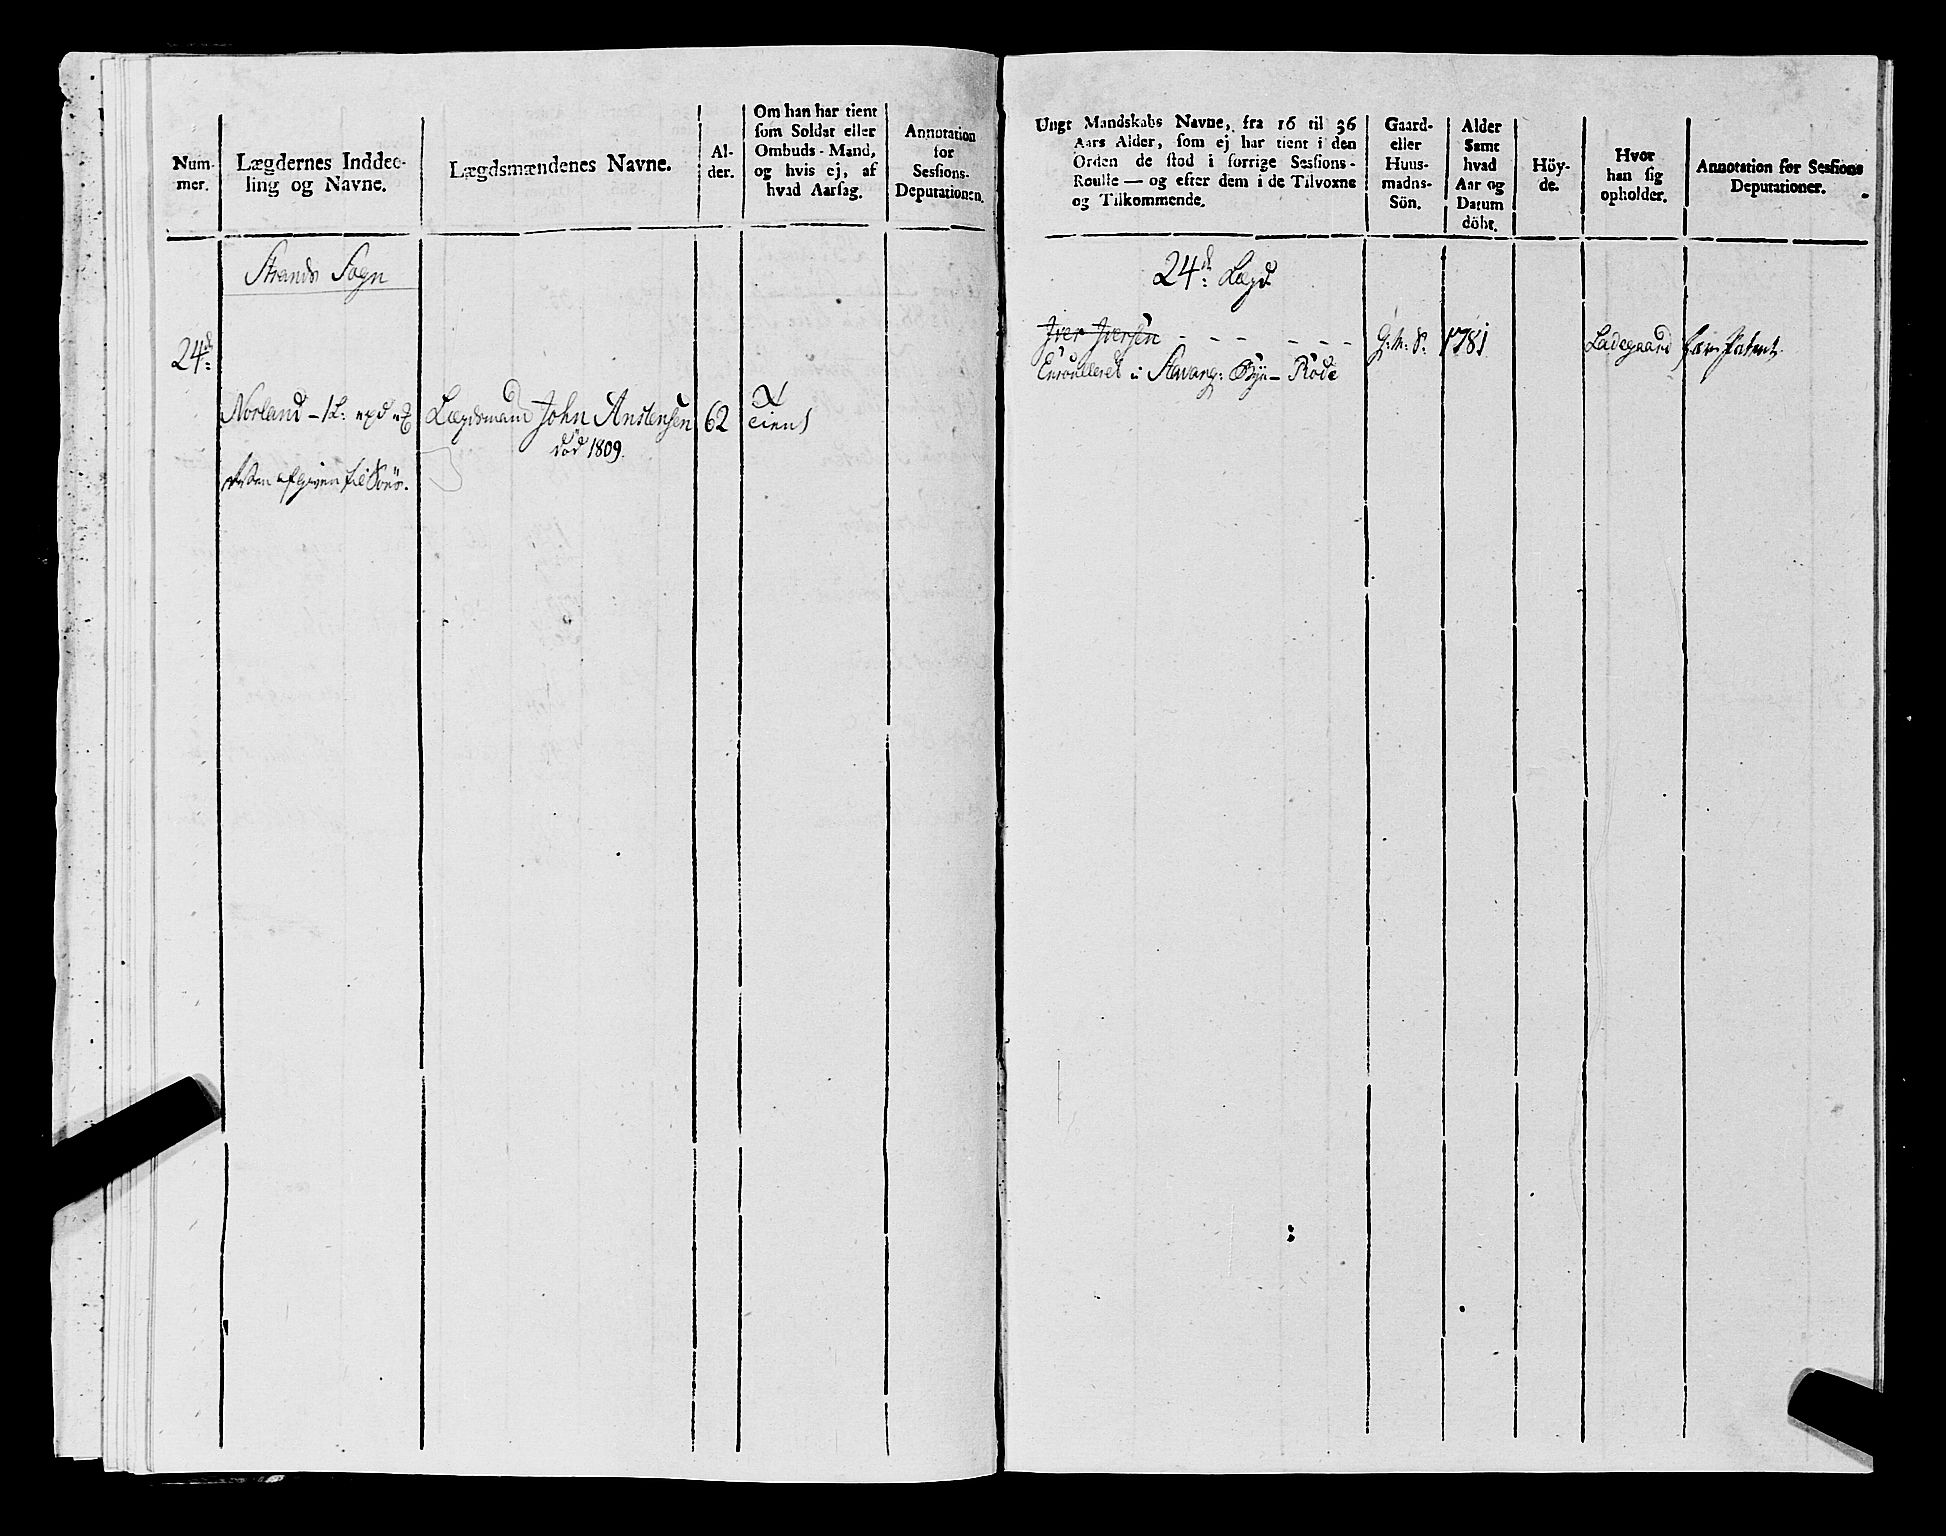 Num-
mer.
Lægdernes Inddee-
ling og Navne.
Lægdsmændenes Navne.
Al-
der.
Om han har tient
som Soldat eller
Ombuds-Mand,
og hvis ej, af
hvad Aarsag.
Annotation
for
Sessions-
Deputationen.
Strands Sogn
24de
Norland - 1 L:
Lægdsmand John Anstensen
62
død 1809.
afgiven til
Ungt Mandskabs Navne, fra 16 til 36
Aars Alder, som ej har tient i den
Orden de stod i forrige Sessions-
Roulle — og efter dem i de Tilvoxne
og Tilkommende.
Gaard-
eller
Huus-
madns-
Sön.
Alder
Samt
hvad
Aar og
Datum
döbt.
Höy-
de.
Hvor
han sig
opholder.
Annotation for Sessions
Deputationer.
24de Lægd
Iver Iversen - - - - - -
G: M: S:
1781
Ladegaard
Enroulleret i Stavang: Byu- Rode